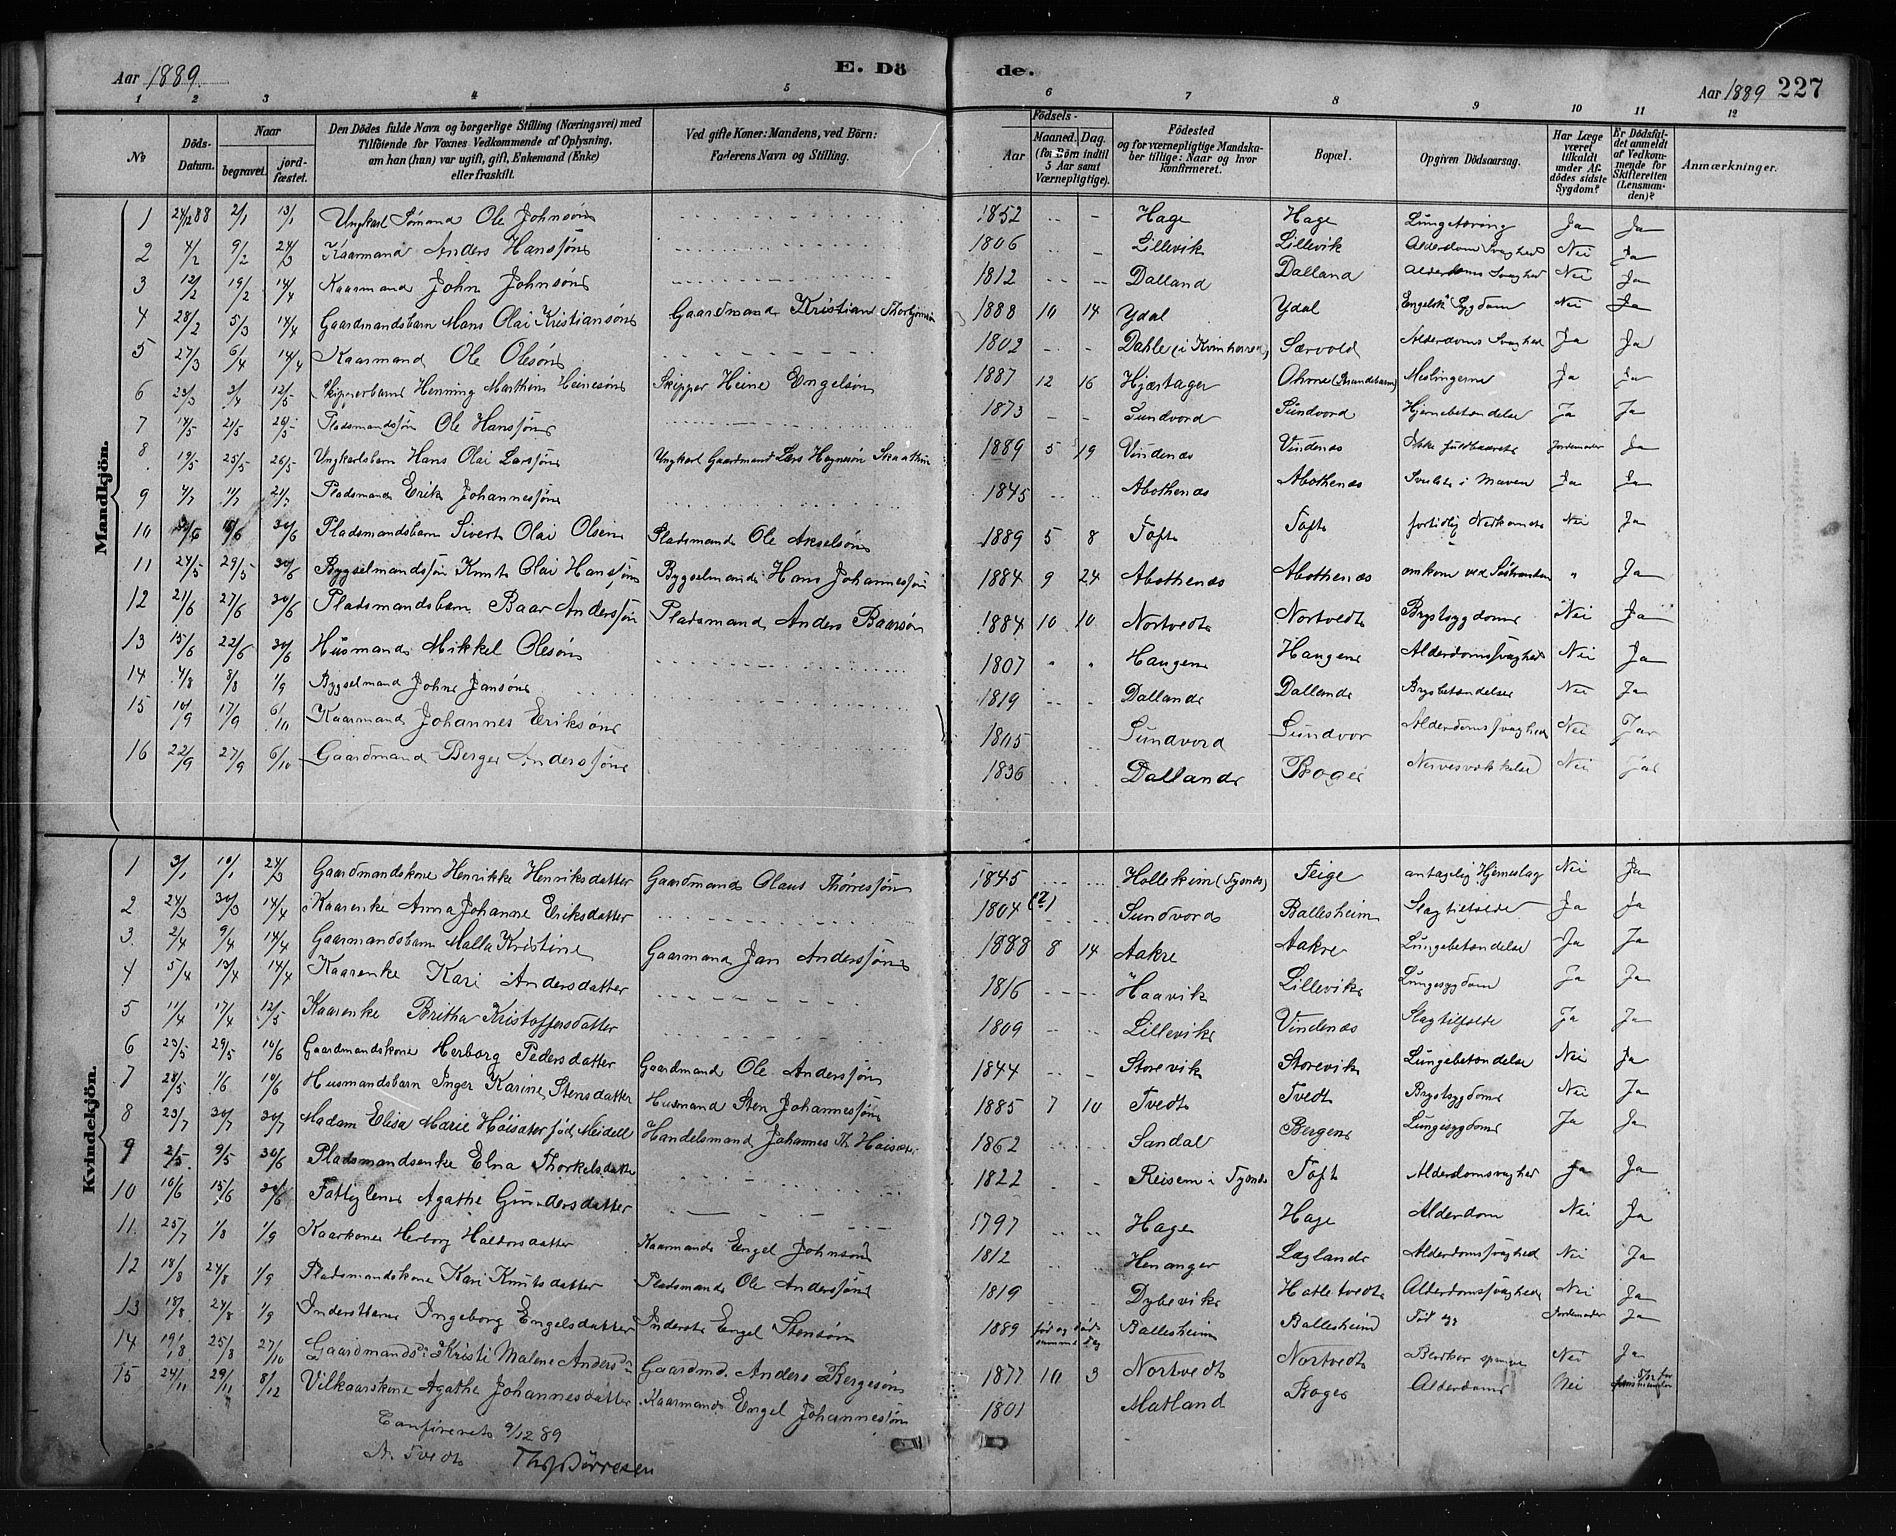 Aar 1889. E. Dö de. Aar 1889 227
1 2 3 4 5 6 7 8 9 10 11 12
No Döds-Datum. Naar begravet. jordfæstet. Den Dödes fulde Navn og borgerlige Stilling (Næringsvei) med Tilföiende for Voxnes Vedkommende af Oplysning, om han (hun) var ugift, gift, Enkemand (Enke) eller fraskilt. Ved gifte Koner: Mandens, ved Börn: Faderens Navn og Stilling. Födsels- Aar Maaned. Dag. (for Börn indtil 5 Aar samt Værnepligtige). Födested og for værnepligtige Mandskaber tillige: Naar og hvor konfirmeret. Bopæl. Opgiven Dödsaarsag. Har Læge været tilkaldt under Afdödes sidste Sygdom? Er Dödsfaldet anmeldt af Vedkommende for Skifteretten (Lensmanden)? Anmærkninger.
Mandkjön.
1 24/12 88 2/1 13/1 Ungkarl Sömand Ole Johnsön 1852 Hage Hage Lungetæring Ja Ja
2 4/2 9/2 24/3 Kaarmand Anders Hanssön 1806 Lillevik Lillevik Alderdom Svaghed Nei Ja
3 12/2 19/2 14/4 Kaarmand John Johnsön 1812 Dalland Dalland Alderdoms Svaghed Nei Ja
4 28/2 5/3 14/4 Gaardmandsbarn Mons Olai Kristiansön Gaardmand Kristian 1888 10 14 Ydal Ydal Engelsk Sygdom Nei Ja
5 27/3 6/4 14/4 Kaarmand Ole Olesön 1802 Dahle (i Kvinherred) Særvold Alderdoms Svaghed Ja Ja
6 23/3 3/4 12/5 Skipperbarn Henning Marthin Heinesön Skipper Heine Engelsön 1887 12 16 Hjærtager (Strandebarm) Meslingerne Ja Ja
7 14/5 21/5 29/5 Pladsmandssön Ole Hanssön 1873 Sundvord Sundvord Hjernebetændelse Ja Ja
8 19/5 25/5 26/5 Ungkarlsbarn Hans Olai Larssön Ungkarl Gaardmand Lars 1889 5 19 Vindenæs Vindenæs Ikke fuldbaaret Jordemoder Ja
9 4/7 11/7 21/7 Pladsmand Erik Johannessön 1845 Abothenæs Abothenæs Svulst i Maven Ja Ja
10 30/6 Pladsmandsbarn Sivert Olai Olsen Pladsmand Ole Akselsön 1889 5 8 Toft Toft fortidlig Nedkomst Nei Ja
11 24/5 29/5 30/6 Bygselmandssön Knut Olai Hanssön Bygselmand Hans Johannessön 1884 9 24 Abothenæs Abothenæs omkom ved " Ja
12 21/6 27/6 30/6 Pladsmandsbarn Baar Anderssön Pladsmand Anders Baarsön 1884 10 10 Nortvedt Nortvedt Brystsygdom Nei Ja
13 15/6 22/6 30/6 Husmand Mikkel Olesön 1807 " " Haugen Haugen Alderdomssvaghed Nei Ja
14 4/8 8/8 1/9 Bygselmand John Jansön 1819 Dalland Dalland Brystbetændelse Nei Ja
15 10/9 17/9 6/10 Kaarmand Johannes Eriksön 1805 Sundvord Sundvor Alderdomssvaghed Nei Ja
16 22/9 27/9 6/10 Gaardmand Berge Anderssön 1836 Dalland Boge Nervesvækkelse Nei Ja
Kvindekjön.
1 3/1 10/1 24/3 Gaardmandskone Henrikke Henriksdatter Gaardmand Olaus Thorressön 1845 Holleheim (Tysnes) Teige antagelig Hjerneslag Nei Ja
2 24/3 30/3 14/4 Kaarenke Anna Johanne Eriksdatter 1804 (?) Sundvord Ballesheim Slagtilfælde Ja Ja
3 2/4 9/4 14/4 Gaarmandsbarn Malla Kristine Gaarmand Jan Anderssön 1888 8 14 Aakre Aakre Lungebetændelse Ja Ja
4 5/4 13/4 14/4 Kaarenke Kari Andersdatter 1816 Haavik Lillevik Lungesygdom Ja Ja
5 11/4 17/4 12/5 Kaarenke Britha Kristoffersdatter 1809 Lillevik Vindenæs Slagtilfælde Ja Ja
6 23/5 29/5 10/6 Gaardmandskone Herborg Pedersdatter Gaardmand Ole Anderssön 1844 Storevik Storevik Lungebetændelse Nei Ja
7 28/5 1/6 10/6 Husmandsbarn Inger Karine Stensdatter Husmand Sten Johannessön 1885 7 10 Tvedt Tvedt Brystsygdom Nei Ja
8 23/7 30/7 30/7 Madam Elisa Marie Höisæter föd Meidell Handelsmand Johannes Th. Höisæter 1862 Sandal Bergen Lungesygdom Ja Ja
9 2/5 9/5 30/6 Pladsmandsenke Elna Thorkelsdatter 1822 Reisem i Tysnes Toft Alderdomsvaghed Ja Ja
10 10/6 15/6 30/6 Fattiglem Agathe Gundersdatter 1797 Hage Hage Alderdom Nei Ja
11 25/7 1/8 1/9 Kaarkone Herborg Haldorsdatter Kaarmand Engel Johnsön 1812 Henanger Læglands Alderdomssvaghed Nei Ja
12 18/8 24/8 1/9 Pladsmandskone Kari Knutsdatter Pladsmand Ole Anderssön 1819 Dybevik Hatletvedt Alderdomssvaghed Nei Ja
13 18/8 24/8 1/9 Ingeborg Engelsdatter Inderst Engel Stensön 1889 föd og död samme dag Ballesheim Ballesheim Jordemoder Ja
14 19/8 25/8 27/10 Gaardmandsd: Kristi Malene Andersd: Gaardmd. Anders Bergesön 1877 10 3 Nortvedt Nortvedt Nei Ja
15 24/11 29/11 8/12 Vilkaarskone Agathe Johannesdatter Kaarmand Engel Johannessön 1801 Matland Boge Alderdom Nei
Confereret 9/12 89
A. Tvedt